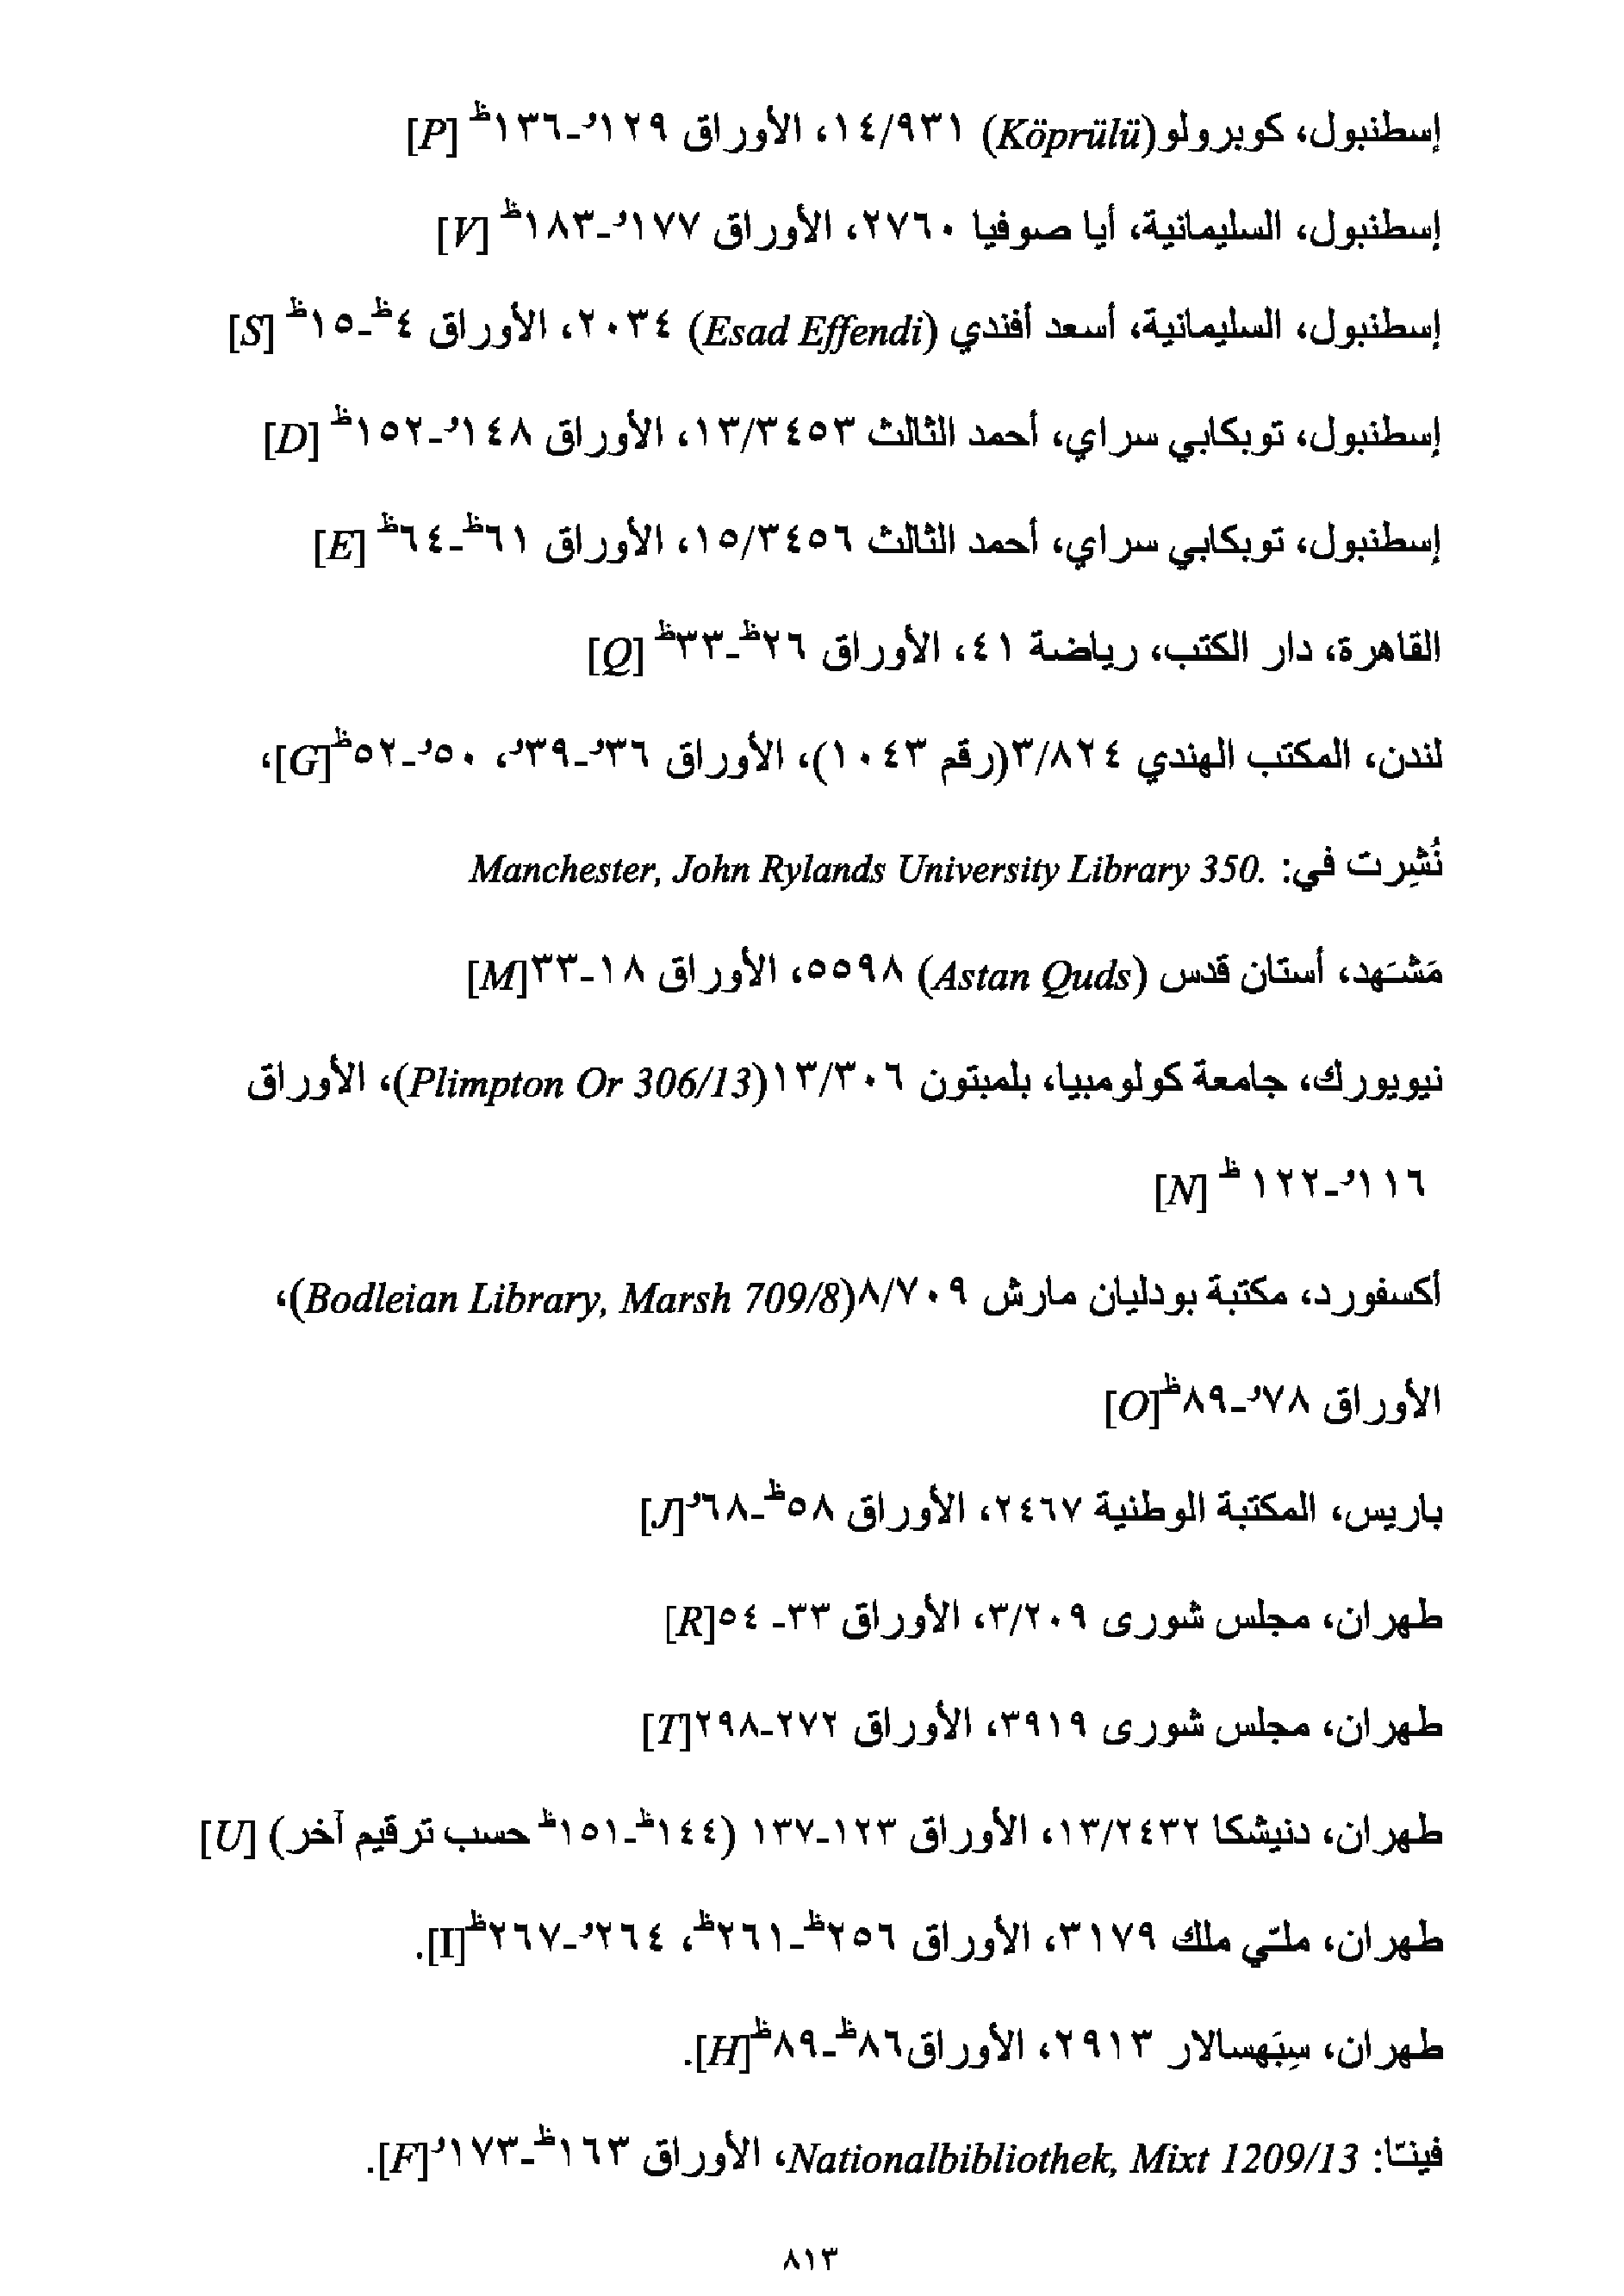 إسطنبول، كوبرولو(Köprülü) ١٤/٩٣١، الأوراق ١٢٩و-١٣٦ظ [P]
إسطنبول، السليمانية، أيا صوفيا ٢٧٦٠، الأوراق ١٧٧و-١٨٣ظ [V]
إسطنبول، السليمانية، أسعد أفندي (Esad Effendi) ٢٠٣٤، الأوراق ٤ظ-١٥ظ [S]
إسطنبول، توبكابي سراي، أحمد الثالث ١٣/٣٤٥٣، الأوراق ١٤٨و-١٥٢ظ [D]
إسطنبول، توبكابي سراي، أحمد الثالث ١٥/٣٤٥٦، الأوراق ٦١ظ-٦٤ظ [E]
القاهرة، دار الكتب، رياضة ٤١، الأوراق ٢٦ظ-٣٣ظ [Q]
لندن، المكتب الهندي ٣/٨٢٤(رقم ١٠٤٣)، الأوراق ٣٦و-٣٩و، ٥٠و-٥٢ظ[G]،
نُشِرت في: Manchester, John Rylands University Library 350.
مَشـَهد، أستان قدس (Astan Quds) ٥٥٩٨، الأوراق ١٨-٣٣[M]
نيويورك، جامعة كولومبيا، بلمبتون ١٣/٣٠٦(Plimpton Or 306/13)، الأوراق
١١٦و-١٢٢ظ [N]
أكسفورد، مكتبة بودليان مارش ٨/٧٠٩(Bodleian Library, Marsh 709/8)،
الأوراق ٧٨و-٨٩ظ[O]
باريس، المكتبة الوطنية ٢٤٦٧، الأوراق ٥٨ظ-٦٨و[J]
طهران، مجلس شورى ٣/٢٠٩، الأوراق ٣٣- ٥٤[R]
طهران، مجلس شورى ٣٩١٩، الأوراق ٢٧٢-٢٩٨[T]
طهران، دنيشكا ١٣/٢٤٣٢، الأوراق ١٢٣-١٣٧ (١٤٤ظ-١٥١ظ حسب ترقيم آخر) [U]
طهران، ملـّي ملك ٣١٧٩، الأوراق ٢٥٦ظ-٢٦١ظ، ٢٦٤و-٢٦٧ظ[I].
طهران، سِبَهسالار ٢٩١٣، الأوراق٨٦ظ-٨٩ظ[H].
فينـّا: Nationalbibliothek, Mixt 1209/13، الأوراق ١٦٣ظ-١٧٣و[F].
٨١٣